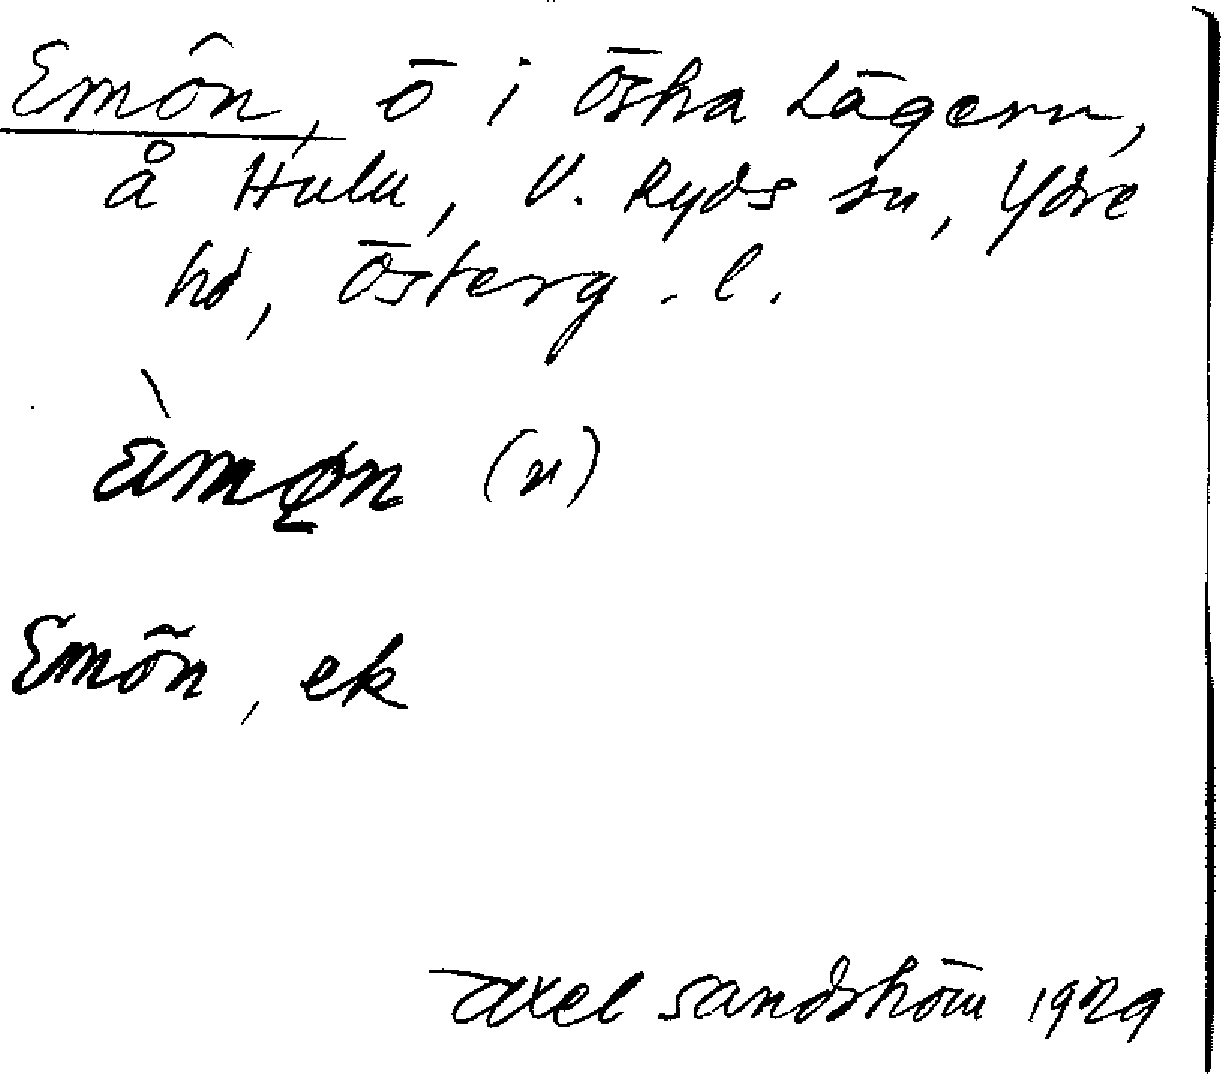 Emön, ö i Östra Lägern,
å Hulu, V. Ryds sn, Ydre
hd, Österg. l.
èmøn (n)
Emön, ek
Axel Sandström 1929